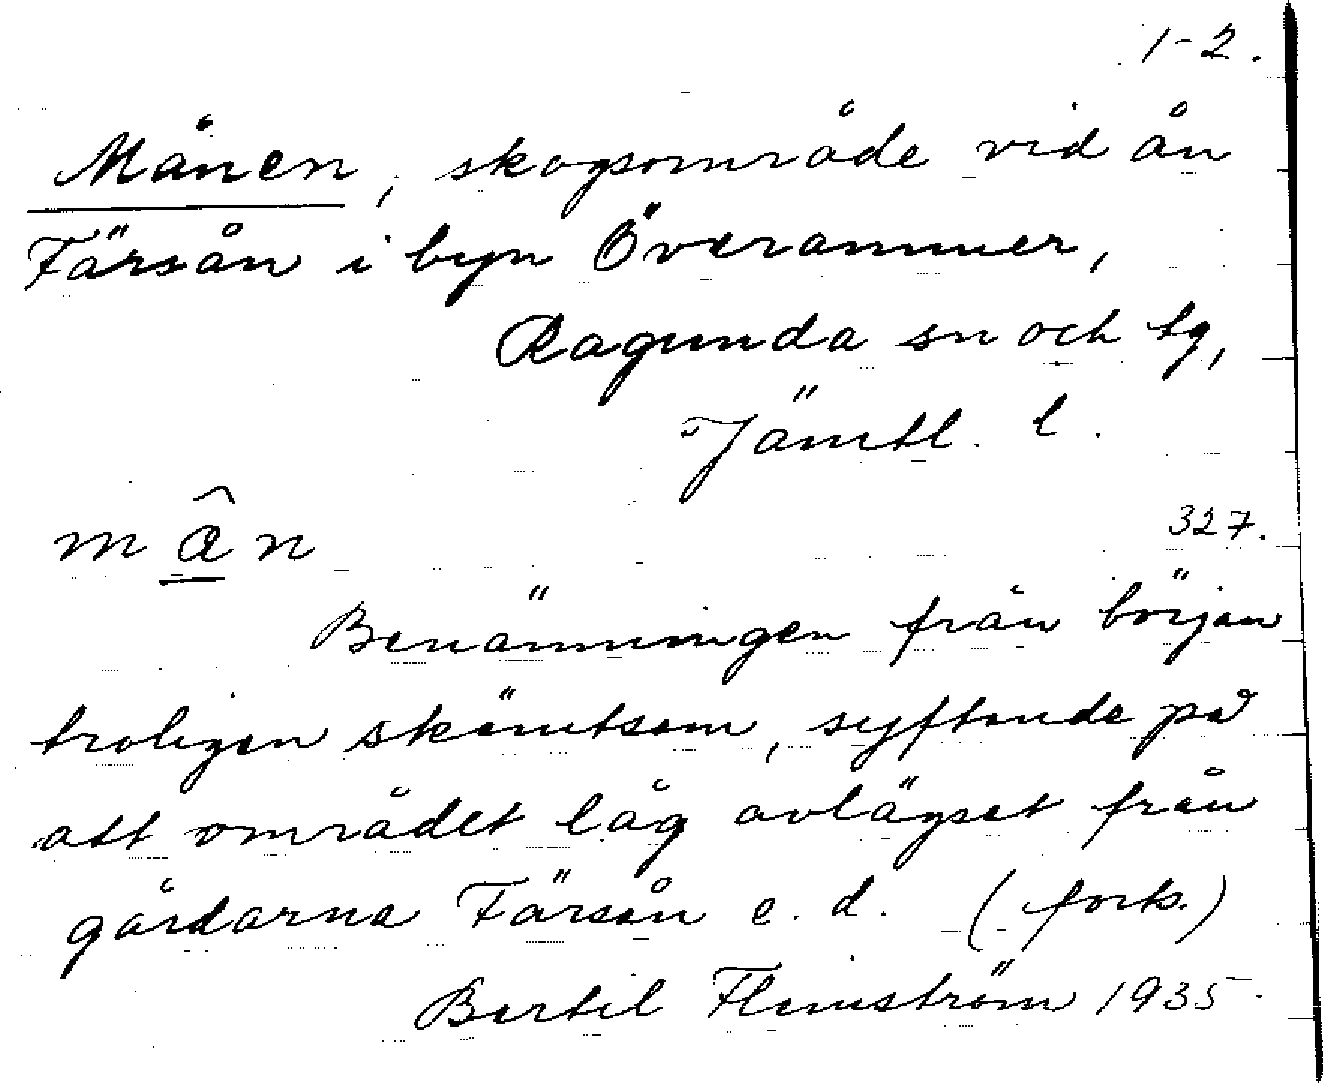 1-2.
Månen, skogsområde vid ån
Färsån i byn Överammer,
Ragunda sn och tg,
Jämtl. l.
mân
327.
Benämningen från början
troligen skämtsam, syftande på
att området låg avlägset från
gårdarna Färsån e. d. (forts.)
Bertil Flemström 1935.